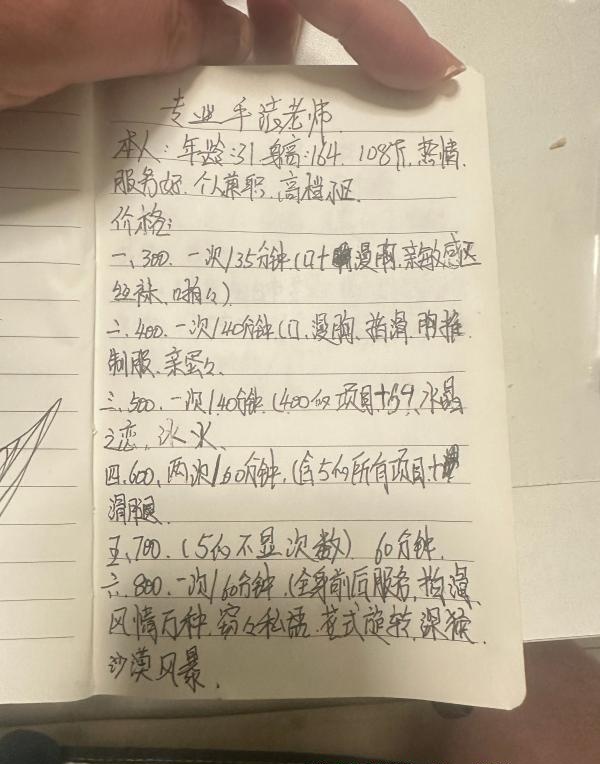 专业手法老师
本人:年龄:31 身高:164. 108斤, 热情.
服务好. 个人兼职, 高档小区.
价格:
一、300. 一次/35分钟(口+漫胸, 亲敏感区
丝袜、啪々)
二、400. 一次/40分钟(口、漫胸、指滑. 胸推
制服、亲蛋々.
三、500. 一次/40分钟(400的项目+59, 水晶
之恋, 冰火、
四.600、两次/60分钟, (含5的所有项目+
滑腿.
五、700. (5的不显次数) 60分钟.
六. 800. 一次/60分钟(全身前后服务, 指滑
风情万种. 窃々私语. 花式旋转, 深喉.
沙漠风暴.